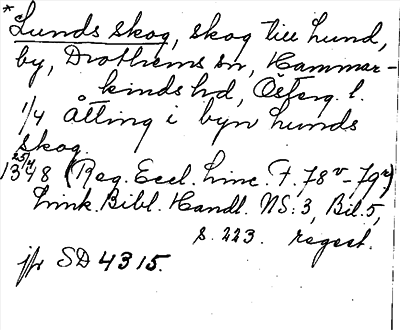 * Lunds skog, skog till Lund,
by, Drothems sn, Hammar-
kinds hd, Österg. l.
1/4 åtting i byn Lunds
skog.
1348 25/4 (Reg. Eccl. Linc. F. 78v-79r)
Link. Bibl. Handl. NS. 3, Bil. 5,
s. 223. regest.
jfr SD 4315.